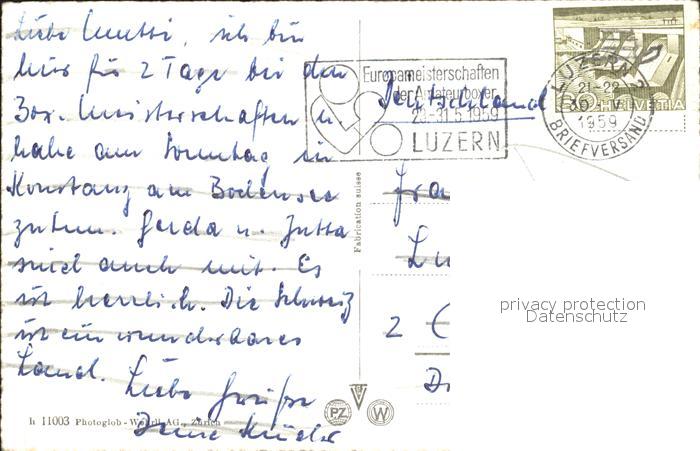 Liebe Mutti, ich bin
hier für 2 Tage bei den
Box-Meisterschaften u.
habe am Sonntag in
Konstanz am Bodensee
zu tun. Gerda u. Jutta
sind auch mit. Es
ist herrlich. Die Schweiz
ist ein wunderbares
Land.
Liebe Grüße
Deine
h 11003 Photoglob-Wehrli AG., Zürich
Fabrication suisse
Europameisterschaften
der Amateurboxer
23.-31.5.1959
LUZERN
Deutschland
LUZERN 2
21-22
30.V.
1959
BRIEFVERSAND
HELVETIA
Fra
Lu
2
D
PZ
W
privacy protection
Datenschutz